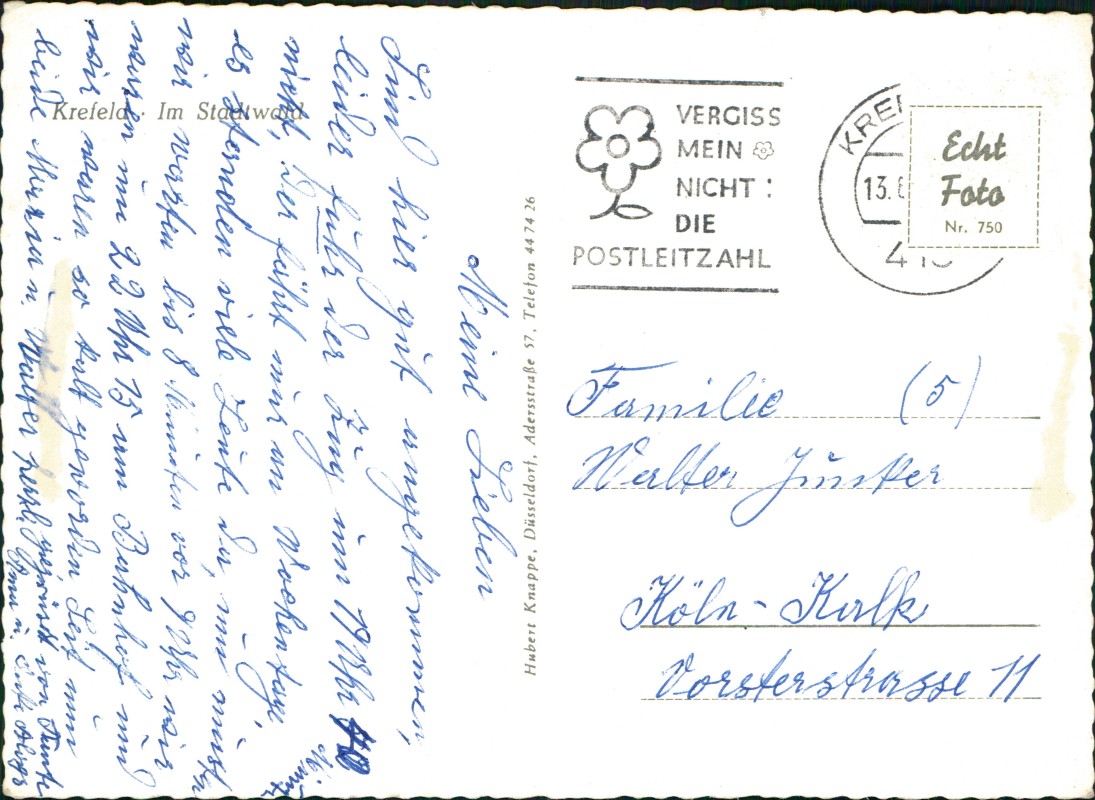 Krefeld · Im Stadtwald
Meine Lieben
Sind hier gut angekommen,
leider fuhr der Zug um 19 Uhr 40
nicht, der fährt nur an Wochentage
es standen viele Leute da, nun mußten
wir warten bis 8 Minuten vor 9 Uhr wir
waren um 22 Uhr 15 am Bahnhof und
wir waren so kalt geworden Seit nun
beide Maria u. Walter herzl. gegrüsst von Tante
Anna u. Onkel
Hubert Knappe, Düsseldorf, Adersstraße 57, Telefon 44 74 26
VERGISS
MEIN
NICHT:
DIE
POSTLEITZAHL
KREF
13.
Echt
Foto
Nr. 750
Familie (5)
Walter Junker
Köln-Kalk
Vorsterstrasse 11